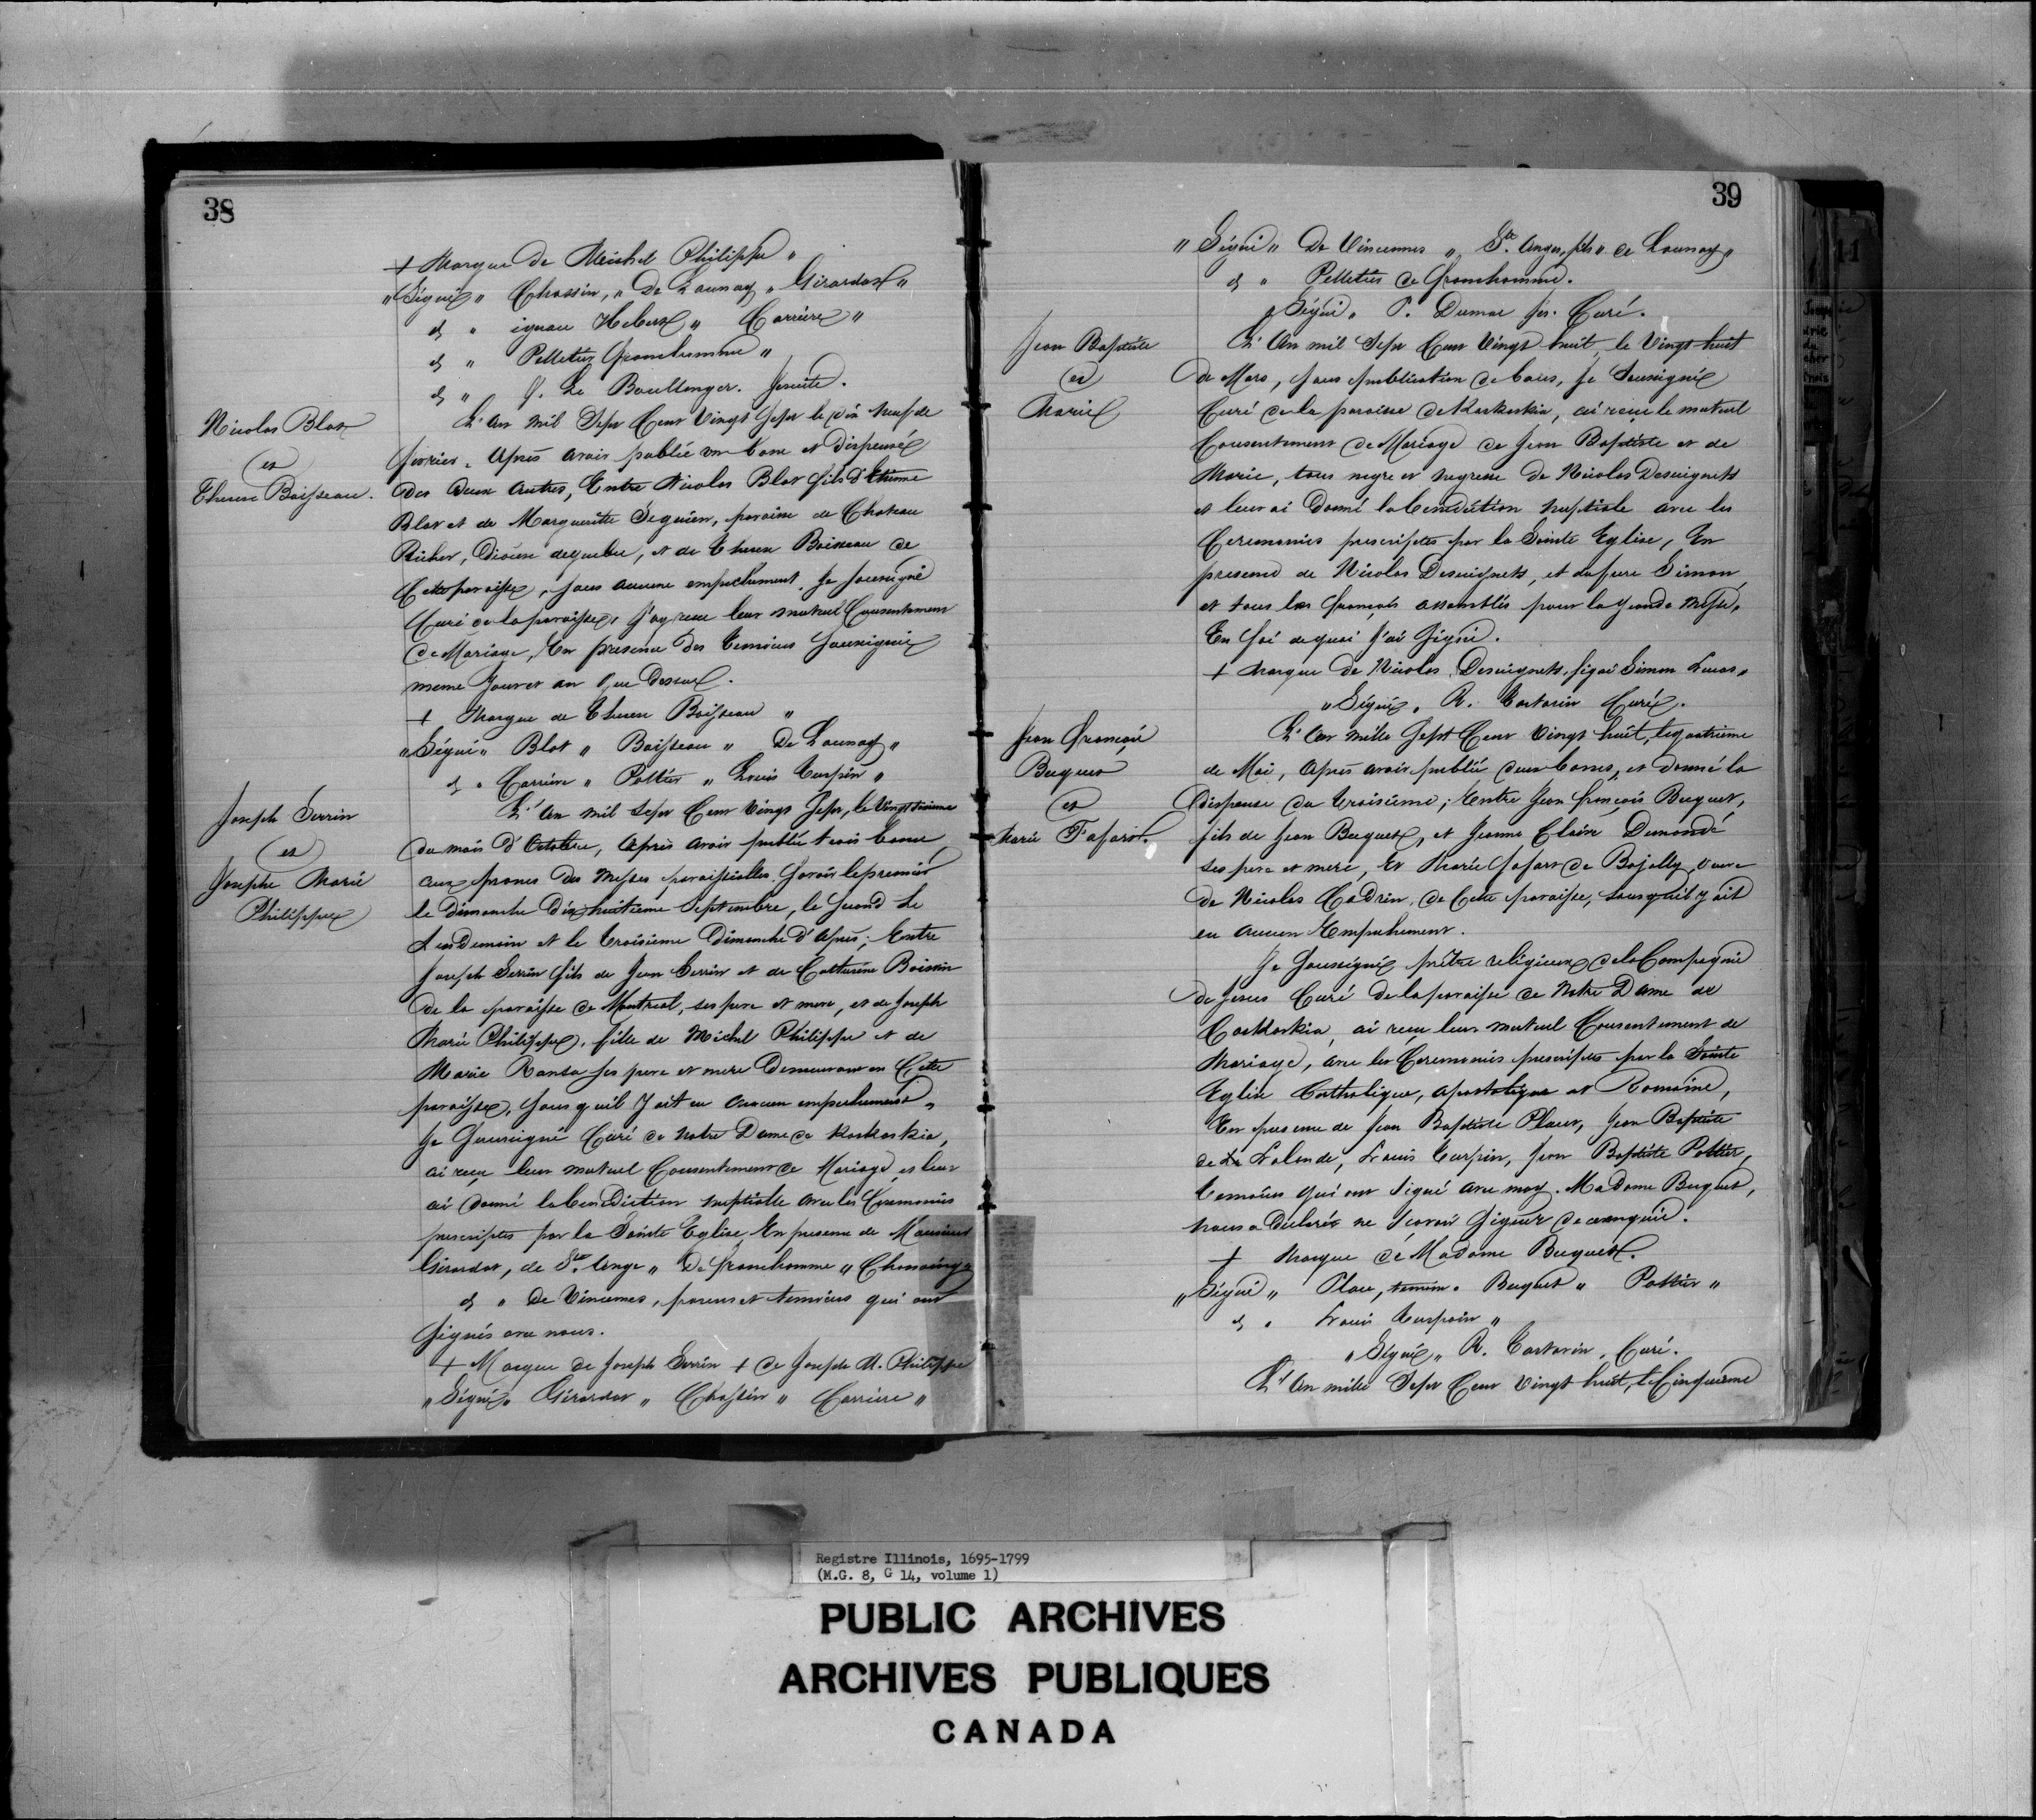 38
+ Marque de Michel Philippe "
"Signé" Chassin, " De Launay " Girardot "
& " ignace Hebert " Carriere "
& " Pelletier franchomme "
& " J. Le Boullenger. Jesuite.
Nicolas Blot
et
Therese Boisseau.
L'an mil Sept Cent Vingt Sept le dix neuf de
fevrier. Après avoir publié un banc et dispensé
des deux autres, Entre Nicolas Blot fils d'Etienne
Blot et de Marguerite Seguien, paroisse de Chateau
Richer, diocese de quebec, et de Therese Boisseau de
Cette paroisse, sans aucune empechement. Je soussigné
Curé de la paroisse, J'ay recu leur mutuel Consentement
de Mariage, En presence des temoins Soussignés
meme Jour et an que Dessus.
+ Marque de Therese Boisseau "
"Signé" Blot " Boisseau " De Launay "
& " Carriere " Pottier " Louis Turpin "
Joseph Serrin
et
Josephe Marie
Philippe
L'An mil Sept Cent Vingt Sept, le Vingt
du mois d'Octobre, Après avoir publié trois bancs
aux prones des Messes paroissialles. Savoir le premier
le dimanche dix huitieme Septembre, le second Le
Lendemain et le troisieme Dimanche d'Après; Entre
Joseph Serrin fils de Jean Serrin et de Catherine Boissin
de la paroisse de Montreal, ses pere et mere, et de Joseph
Marie Philippe, fille de Michel Philippe et de
Marie Ses pere et mere Demeurant en Cette
paroisse, sans quil y ait eu aucun empechement,
Je Soussigné Curé de Notre Dame de Kaskaskia,
ai reçu leur mutuel Consentement de Mariage, et leur
ai donné la benediction nuptialle avec les Ceremonies
prescriptes par la Sainte Eglise, En presence de Monsieur
Girardot, de Ste. Ange " De franchomme "
& " De Vincennes, parens et temoins qui ont
signés avec nous.
+ Marque de Joseph Serrin + de Joseph M. Philippe
"Signé" Girardot " Chassin " Carriere "
39
"Signé" De Vincennes " Ste. Ange, fils " de Launay "
& " Pelletier de franchomme.
"Signé" P. Dumas Jes. Curé.
Jean Baptiste
et
Marie
L'An mil Sept Cent Vingt huit, le Vingt huit
de Mars, sans publication de bans, Je Soussigné
Curé de la paroisse de Kaskaskia, ai reçu le mutuel
Consentement de Mariage de Jean Baptiste et de
Marie, tous negre et negresse de Nicolas Desuignets
et leur ai Donné la benediction nuptiale avec les
Ceremonies prescriptes par la Sainte Eglise, En
presence de Nicolas Desuignets, et du frere Simon,
et tous les françois assemblés pour la grande Messe,
En foi de quoi J'ai Signé.
+ Marque de Nicolas Desuignets, signé Simon Lucas "
"Signé" R. Tartarin Curé.
Jean François
Becquet
et
Marie Fafart.
L'An mille Sept Cent Vingt huit, le quatrieme
de Mai, Après avoir publié deux bancs, et donné la
dispense du troisieme; Entre Jean françois Becquet,
fils de Jean Becquet, et Jeanne Claire Demondé
ses pere et mere, Et Marie fafart de Bojolly, veuve
de Nicolas Cadrin, de Cette paroisse, sans quil y ait
eu aucun Empechement.
Je Soussigné prêtre religieux de la Compagnie
de Jesus Curé de la paroisse de Notre Dame de
Caskaskia, ai reçu leur mutuel Consentement de
Mariage, avec les Ceremonies prescriptes par la Sainte
Eglise Catholique, apostolique et Romaine,
En presence de Jean Baptiste Place, Jean Baptiste
de La Lalande, Louis Turpin, Jean Baptiste Pottier,
temoins qui ont Signé avec moy. Madame Becquet,
nous a declaré ne Scavoir Signer de ce enquie.
+ Marque de Madame Becquet.
"Signé" Place, temoin " Becquet " Pottier "
& " Louis Turpin "
"Signé" R. Tartarin, Curé.
L'An mille Sept Cent Vingt huit, le Cinquieme
Registre Illinois, 1695-1799
(M.G. 8, G 14, volume 1)
PUBLIC ARCHIVES
ARCHIVES PUBLIQUES
CANADA